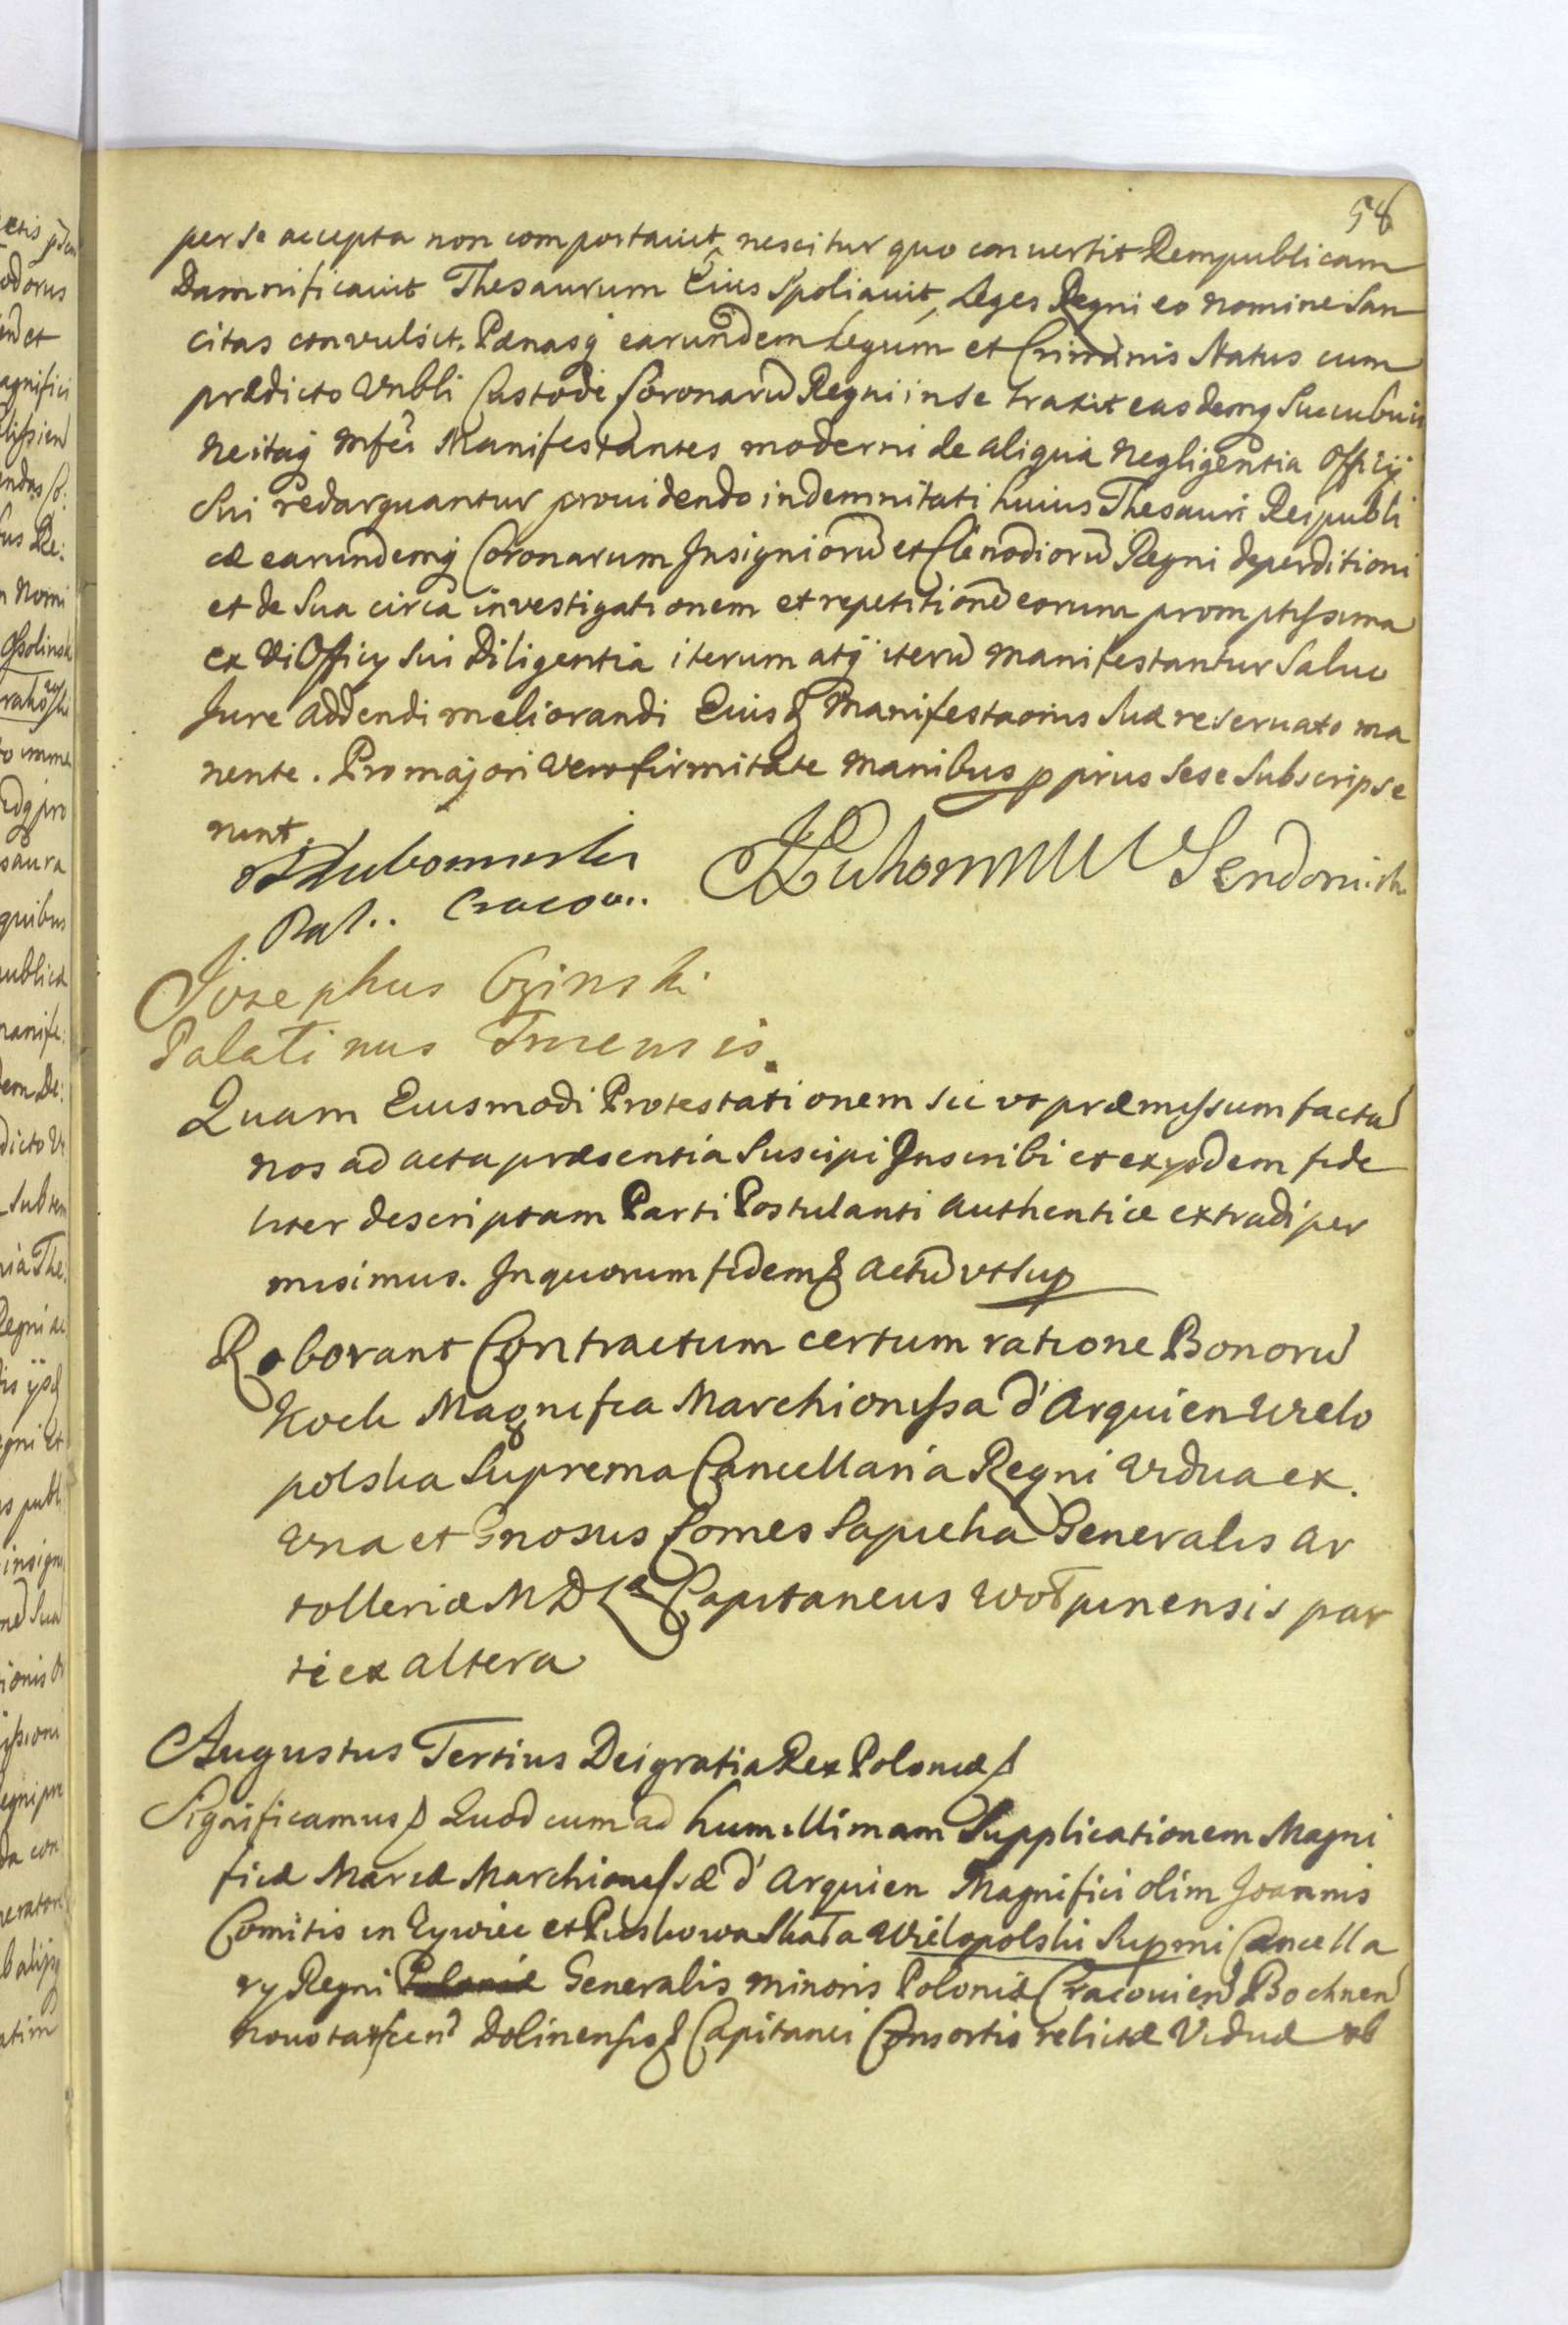 58
per se accepta non comportauit, nescitur quo conuertit Rempublicam
Damnificauit Thesaurum Eius Spoliauit, Leges Regni eo nomine San
citas convulsit. Pænasq earundem Legum et Criminis Natus cum
prædicto Vrbli Custode Coronarũ Regni in se traxit easdemq Succubuit
Ne itaq Mfci Manifestantes moderni de aliqua Negligentia Officij
Sui redarguantur prouidendo indemnitati huius Thesauri Reipubli
cæ earundemq Coronarum Insigniorũ et Clenodiorũ Regni deperditioni
et de Sua circa investigationem et repetitionẽ eorum promptissima
ex vi Officij Sui Diligentia iterum atq iterũ manifestantur Saluo
Jure addendi meliorandi Eiusq Manifestaonis Suæ reseruato ma
nente. Pro majori Vero firmitate Manibus pprius Sese Subscripse
runt.
Lubomirski
Pal.. Cracov..
Sendomirh
Josephus Oginski
Palatinus Trucensis.
Quam Eiusmodi Protestationem sic vt præmissum factã
Nos ad acta præsentia Suscipi Inscribi et ex ijsdem fide
liter descriptam Parti Postulanti Authentice extradi per
misimus. In quorum fidem Actũ vt sup
Roborant Contractum certum ratione Bonorũ
Kock Magnifica Marchionissa d'Arquien Wielo
polska Suprema Cancellaria Regni Vidua ex.
Vna et Gnosus Comes Sapieha Generalis Ar
tolleriæ M D L Capitaneus Wołpinensis par
te ex altera
Augustus Tertius Dei gratia Rex Poloniæ
Significamus Quod cum ad humillimam Supplicationem Magni
ficæ Mariæ Marchionissæ d'Arquien Magnifici olim Joannis
Comitis in Zywiec et Pieskowa Skała Wielopolski Supremi Cancella
ry Regni Poloniæ Generalis Minoris Poloniæ Cracouien Bochnen
Nouotarscen Dolinensis Capitanei Consortis relictæ Viduæ ab